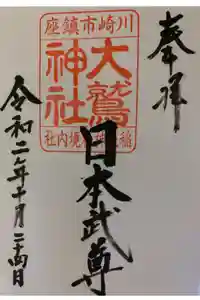 奉拝
川崎市鎮座
大鷲
神社
境内社
日本武尊
令和二年十月二十四日